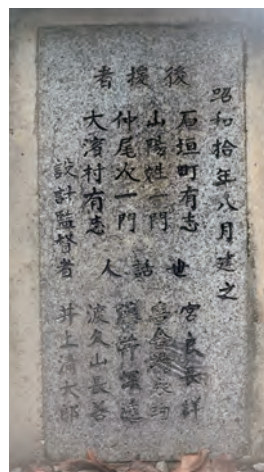 昭和拾年八月建之
後援者
石垣町有志
山陽姓一門
仲尾次一門
大濱村有志
世話人
宮良長詳
設計監督者 井上清太郎